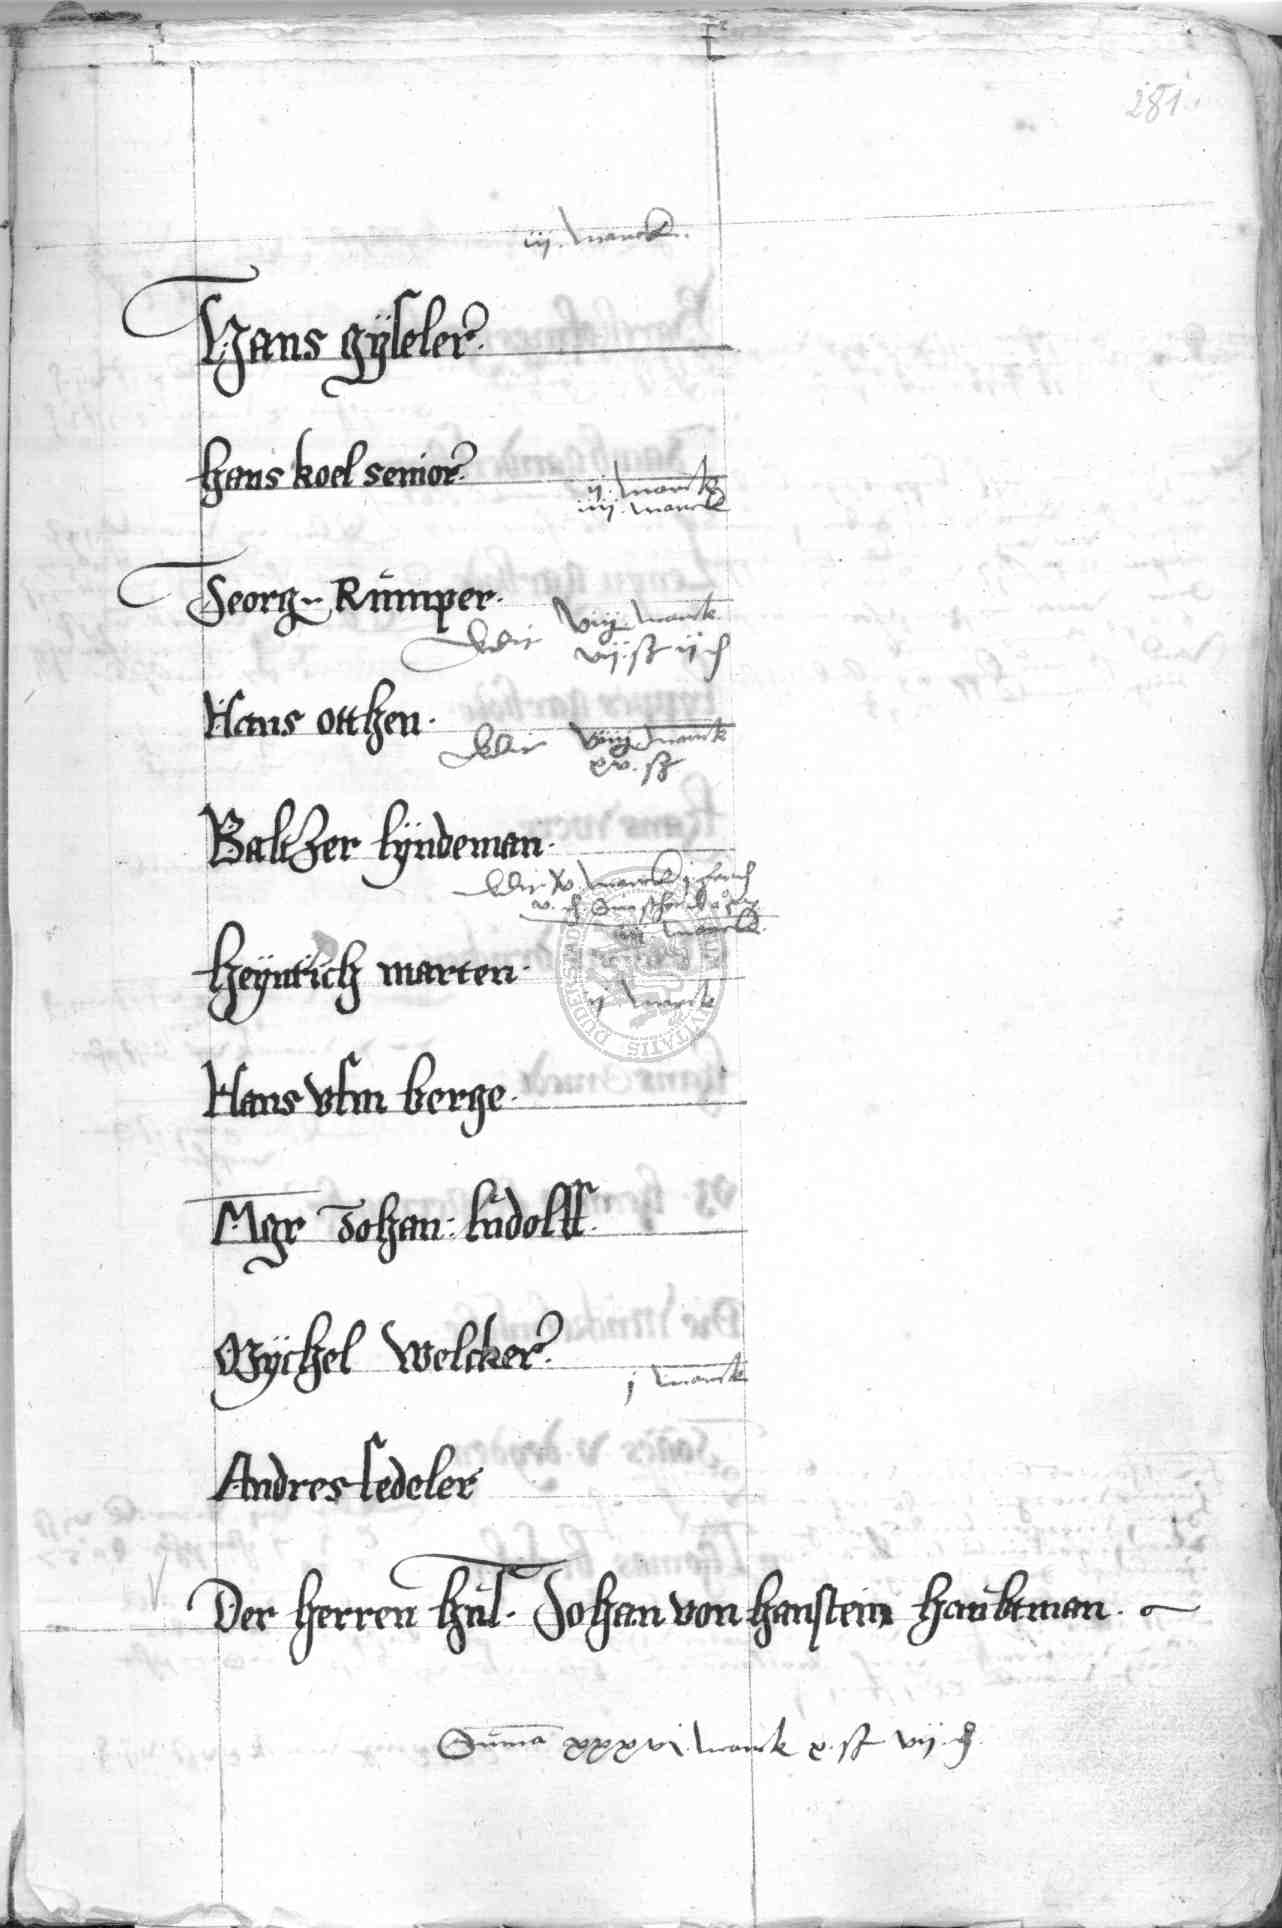 281
iij. marck.
Hans gÿseler.
hans koel senior.
ij. marck
iiij. marck
Georg Růmper.
viij marck
dedit vij. ß ij ₰
Hans otthen.
dedit viij marck
xv. ß
Baltzer lÿndeman.
dedit v. marck j
v. ₰
marck.
heÿnrich marten.
ij marck
Hans vfm berge.
Mgr Johan: lůdolff.
Mÿchel Welcker.
j marck
Andres sedeler
Der herren hůs. Johan von hanstein haůbtman.
Sum̄a xxxvi marck x. ß vij. ₰.